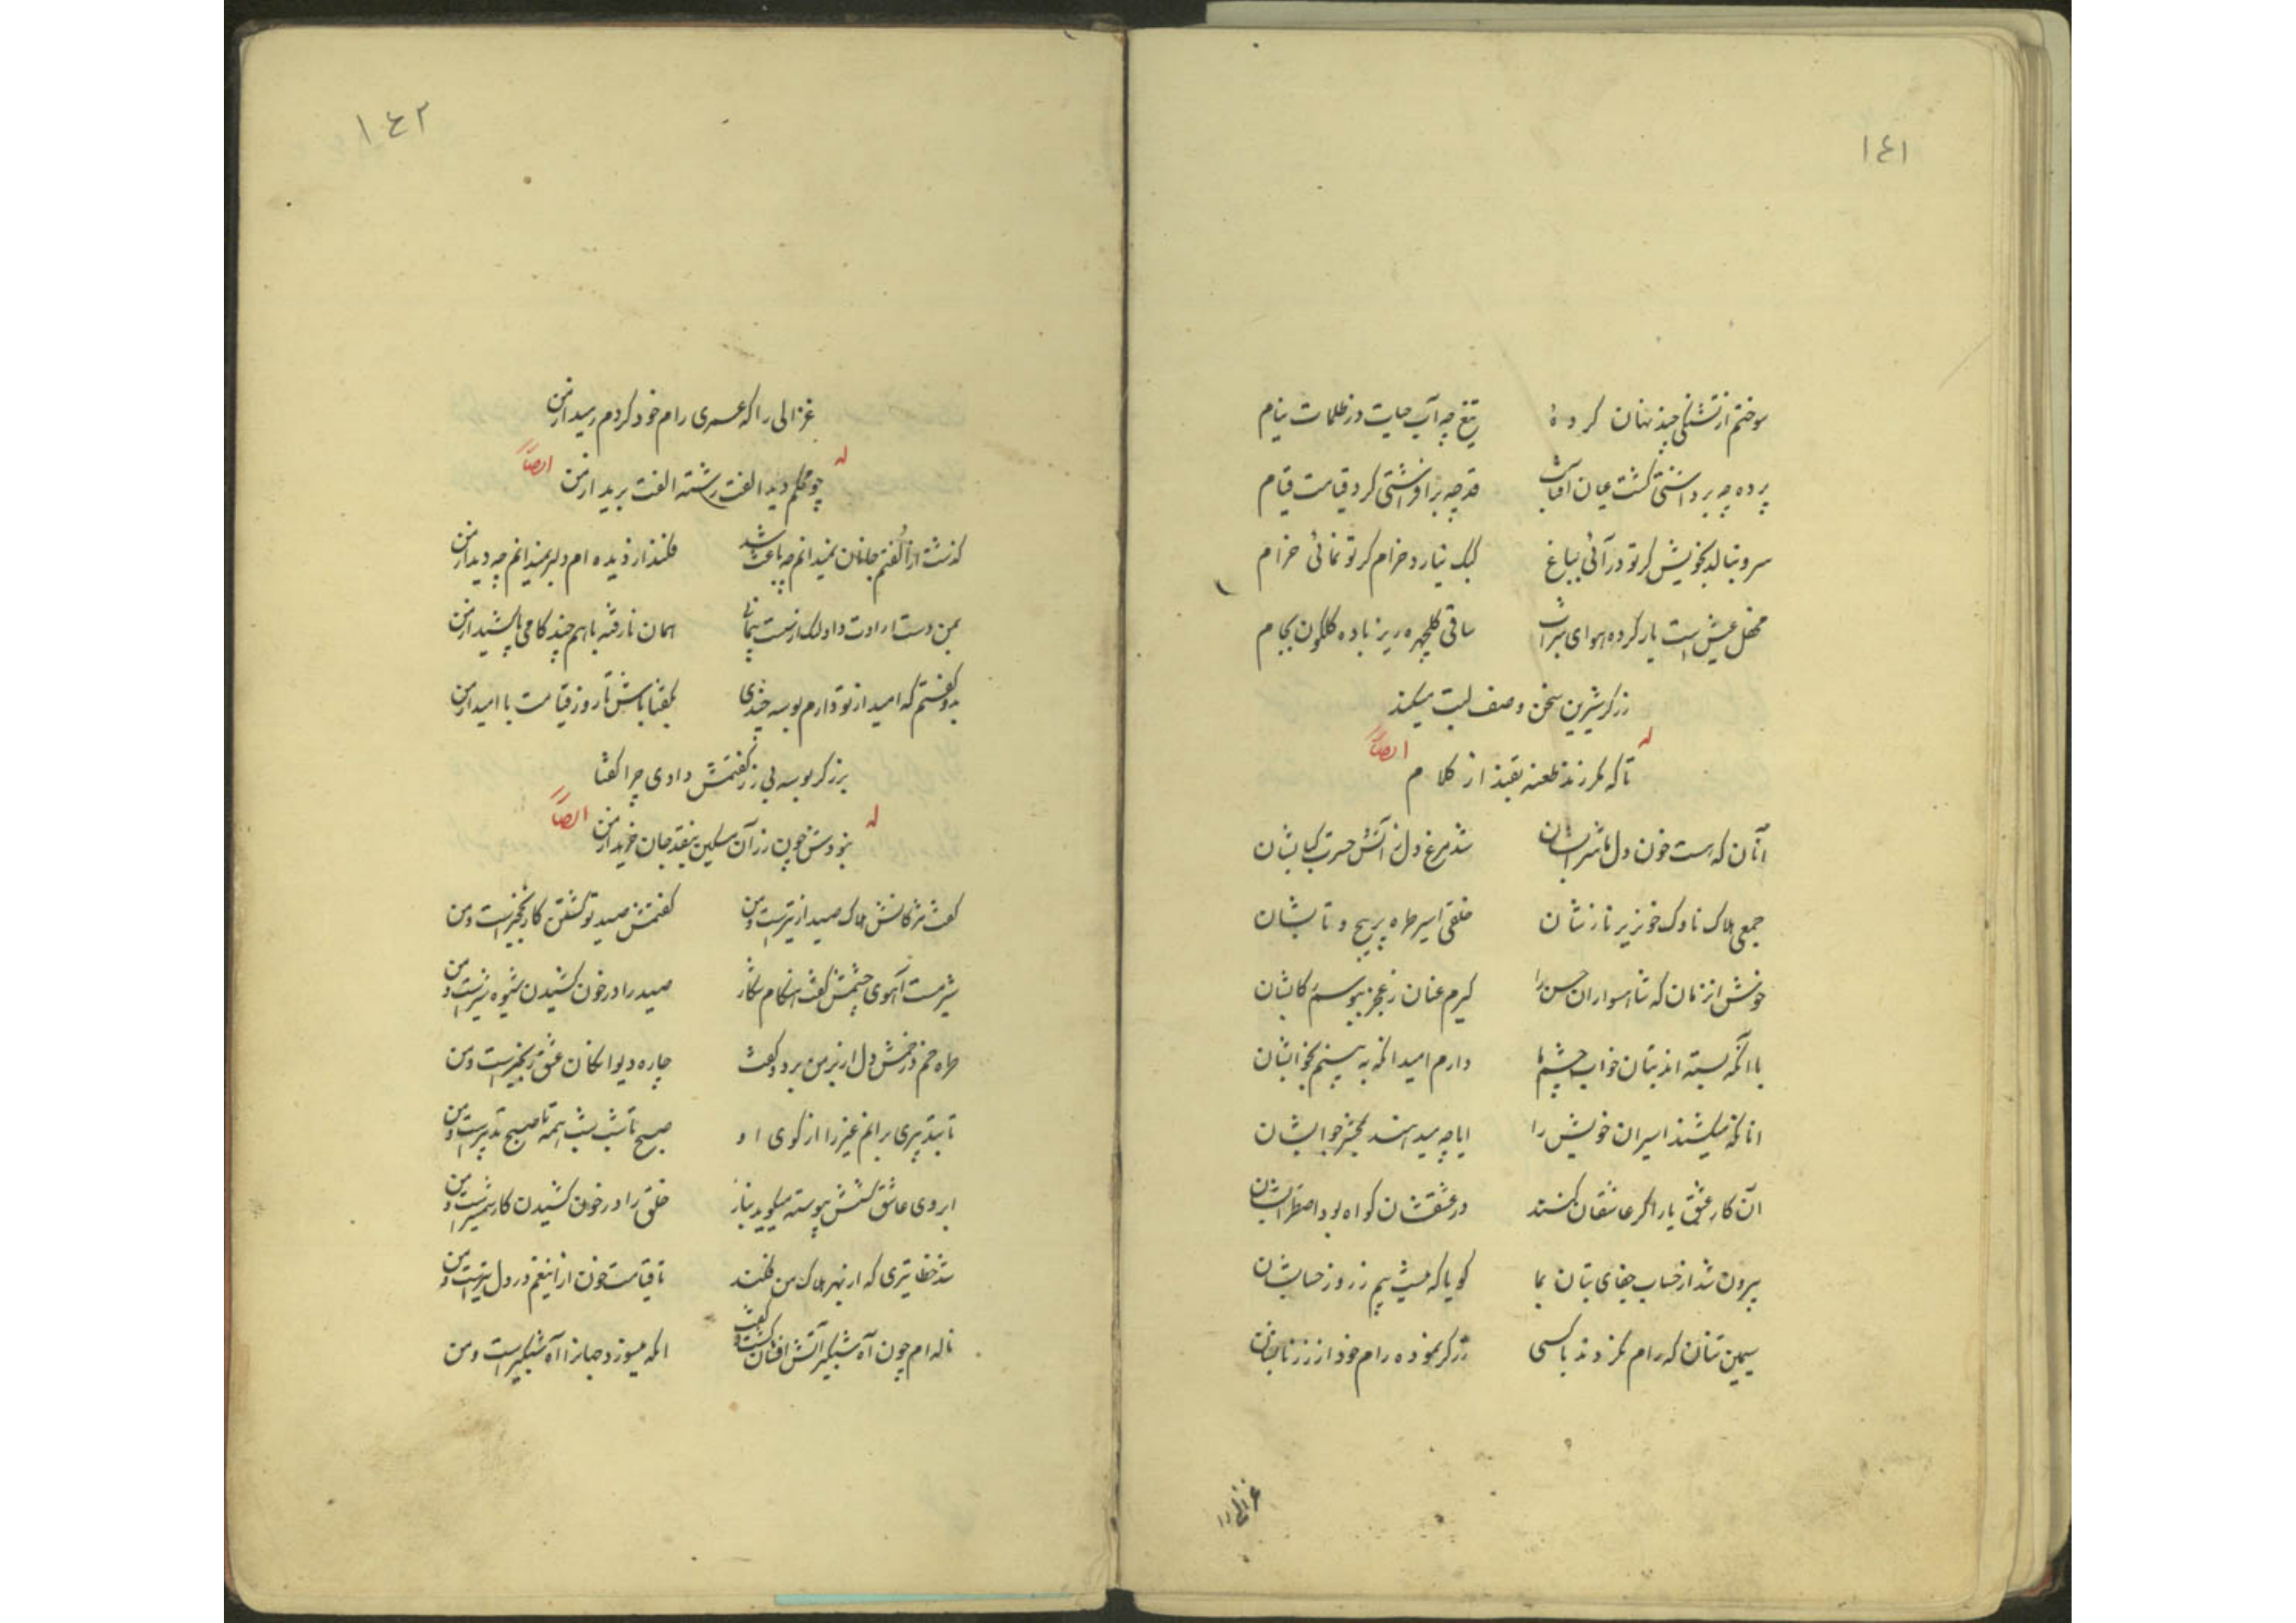 ١٤١
سوختم از تشنگی چند نهان کرده‌ٔ    تیغ چه آب حیات در ظلمات نیام
پرده چه برداشتی گشت عیان آفتاب    قد چه برافراشتی کرد قیامت قیام
سرو ببالد بخویش گر تو در آئی بباغ    کبک نیارد خرام گر تو نمائی خرام
محفل عیش است یار کرده هوای شراب    ساقی گلچهره ریز باده گلگون بجام
زرگر شیرین سخن وصف لبت میکند
تا که مکرر زند طعنه بقند از کلام
له ایضاً
آنان که هست خون دل ما شرابشان    شد مرغ دل ز آتش حسرت کبابشان
جمعی هلاک ناوک خونریز نازشان    خلقی اسیر طره پرپیچ و تابشان
خوش انزمان که شاهسواران حسن را    گیرم عنان ز عجز ببوسم رکابشان
با آنکه بسته اند بتان خواب چشم ما    دارم امید آنکه ببینم بخوابشان
آنانکه میکشند اسیران خویش را    ایا چه میدهند بمحشر جوابشان
آن کار عشق یار اگر عاشقان کنند    در عشقشان گواه بود اضطرابشان
بیرون شد از حساب جفای بتان بما    گویا که نیست بیم ز روز حسابشان
سیمین تنان که رام نکردند با کسی    زرگر نموده رام خود از زر نابشان
غزالی را
١٤٢
غزالی را که عمری رام خود کردم رمید از من
چو محکم دید الفت رشته الفت برید از من
له ایضاً
گذشت از الفتم جانان نمیدانم چه باعث شد    فکند از دیده ام دلبر نمیدانم چه دید از من
بمن دست ارادت داد اول از سست پیمانی    همان نارفته با هم چند گامی پا کشید از من
بدو گفتم که امید از تو دارم بوسه چندی    بگفتا باش تا روز قیامت با امید از من
بزرگر بوسه بی زر گفتمش دادی چرا گفتا
نبودش چون زر آن مسکین بنقد جان خرید از من
له ایضاً
گفت مژگانش هلاک صید از تیر است و من    گفتمش صید تو گشتن کار نخجیر است و من
شیر مست آهوی چشمش گفت هنگام شکار    صید را در خون کشیدن شیوه شیر است و من
طره خم در خمش دل از بر من برد و گفت    چاره دیوانگان عشق زنجیر است و من
تا بتدبیری برانم غیر را از کوی او    صبح تا شب شب همه تا صبح تدبیر است و من
ابروی عاشق کشش پیوسته میگوید بناز    خلق را در خون کشیدن کار شمشیر است و من
شد خطا تیری که از بهر هلاک من فکند    تا قیامت خون از اینغم در دل تیر است و من
ناله ام چون آه شبگیر آتش افشان گشت و گفت    آنکه میسوزد جهانرا آه شبگیر است و من